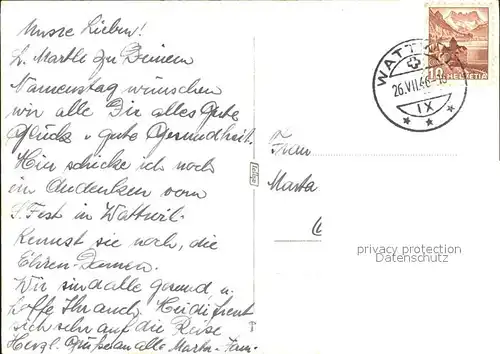 Unsere Lieben!
L. Martha zu Deinem
Namenstag wünschen
wir alle Dir alles Gute
Glück u. gute Gesundheit.
Hier schicke ich noch
ein Andenken vom
S. Fest in Wattwil.
Kennst sie noch, die
Ehren-Damen.
Wir sind alle gesund u.
hoffe Ihr auch. Heidi freut
sich sehr auf die Reise
Herzl. Grüße an alle Martha - Fam.
WATTWIL
26.VII.46
IX
10
HELVETIA
Frau
Marta
privacy protection
Datenschutz